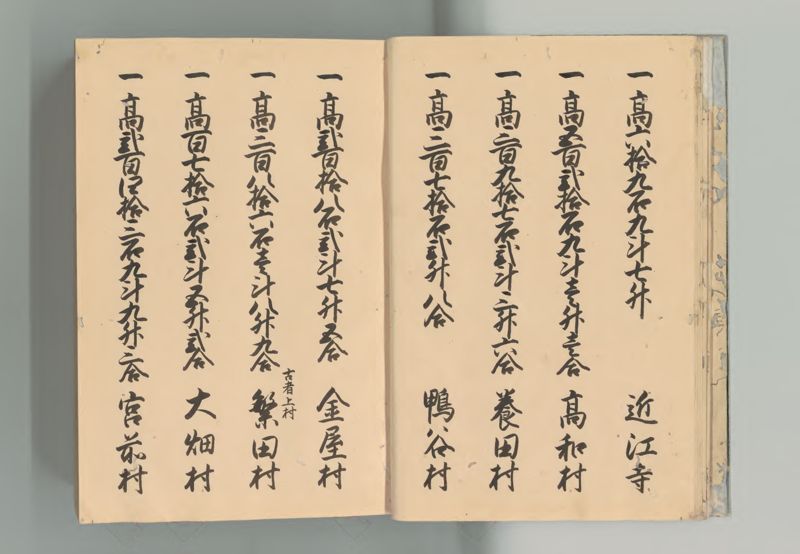 一 高六拾九石九斗七升 近江寺
一 高五百弐拾石九斗壱升壱合 高和村
一 高三百九拾七石弐斗三升六合 養田村
一 高三百七拾石弐升八合 鴨谷村
一 高弐百拾八石弐斗七升五合 金屋村
一 高三百八拾六石壱斗八升九合 古者上村 繁田村
一 高百七拾六石弐斗五升弐合 大畑村
一 高弐百四拾三石九斗九升三合 宮前村